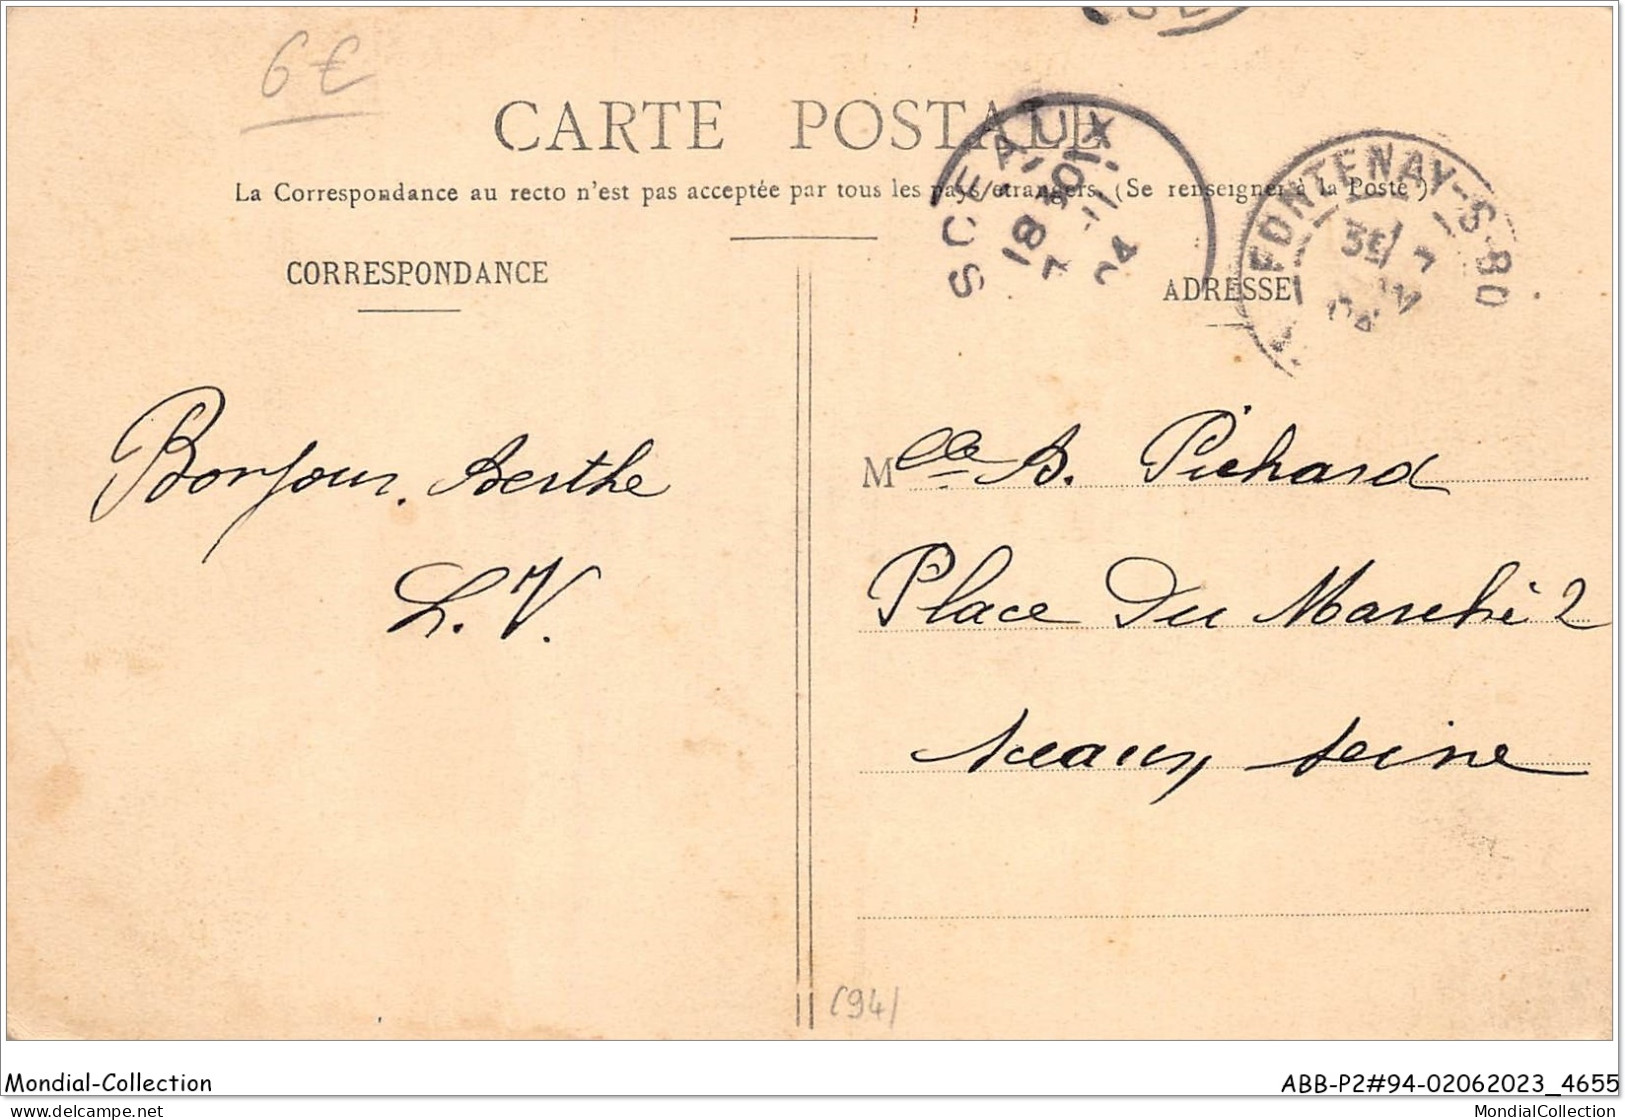 6€
CARTE POSTALE
La Correspondance au recto n'est pas acceptée par tous les pays étrangers. (Se renseigner à la Poste)
SCEAUX
18 30
7 -11
04
FONTENAY-S-BO
3E 7
04
CORRESPONDANCE
ADRESSE
Bonjour. Berthe
L. V.
Mlle B. Pichard
Place Du Marché 2
Sceaux Seine
(94)
Mondial-Collection
ABB-P2#94-02062023_4655
www.delcampe.net
MondialCollection